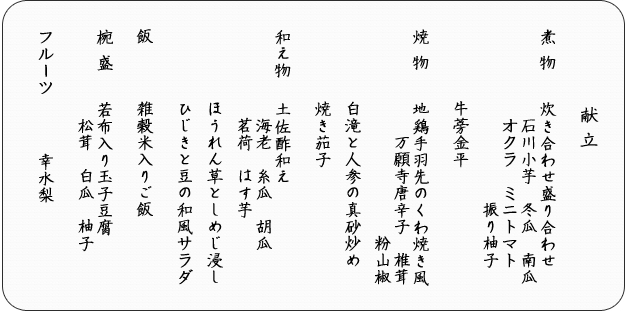 献立
煮物 炊き合わせ盛り合わせ
石川小芋 冬瓜 南瓜
オクラ ミニトマト
振り柚子
牛蒡金平
焼物 地鶏手羽先のくわ焼き風
万願寺唐辛子 椎茸
粉山椒
白滝と人参の真砂炒め
焼き茄子
和え物 土佐酢和え
海老 糸瓜 胡瓜
茗荷 はす芋
ほうれん草としめじ浸し
ひじきと豆の和風サラダ
飯 雑穀米入りご飯
椀盛 若布入り玉子豆腐
松茸 白瓜 柚子
フルーツ 幸水梨